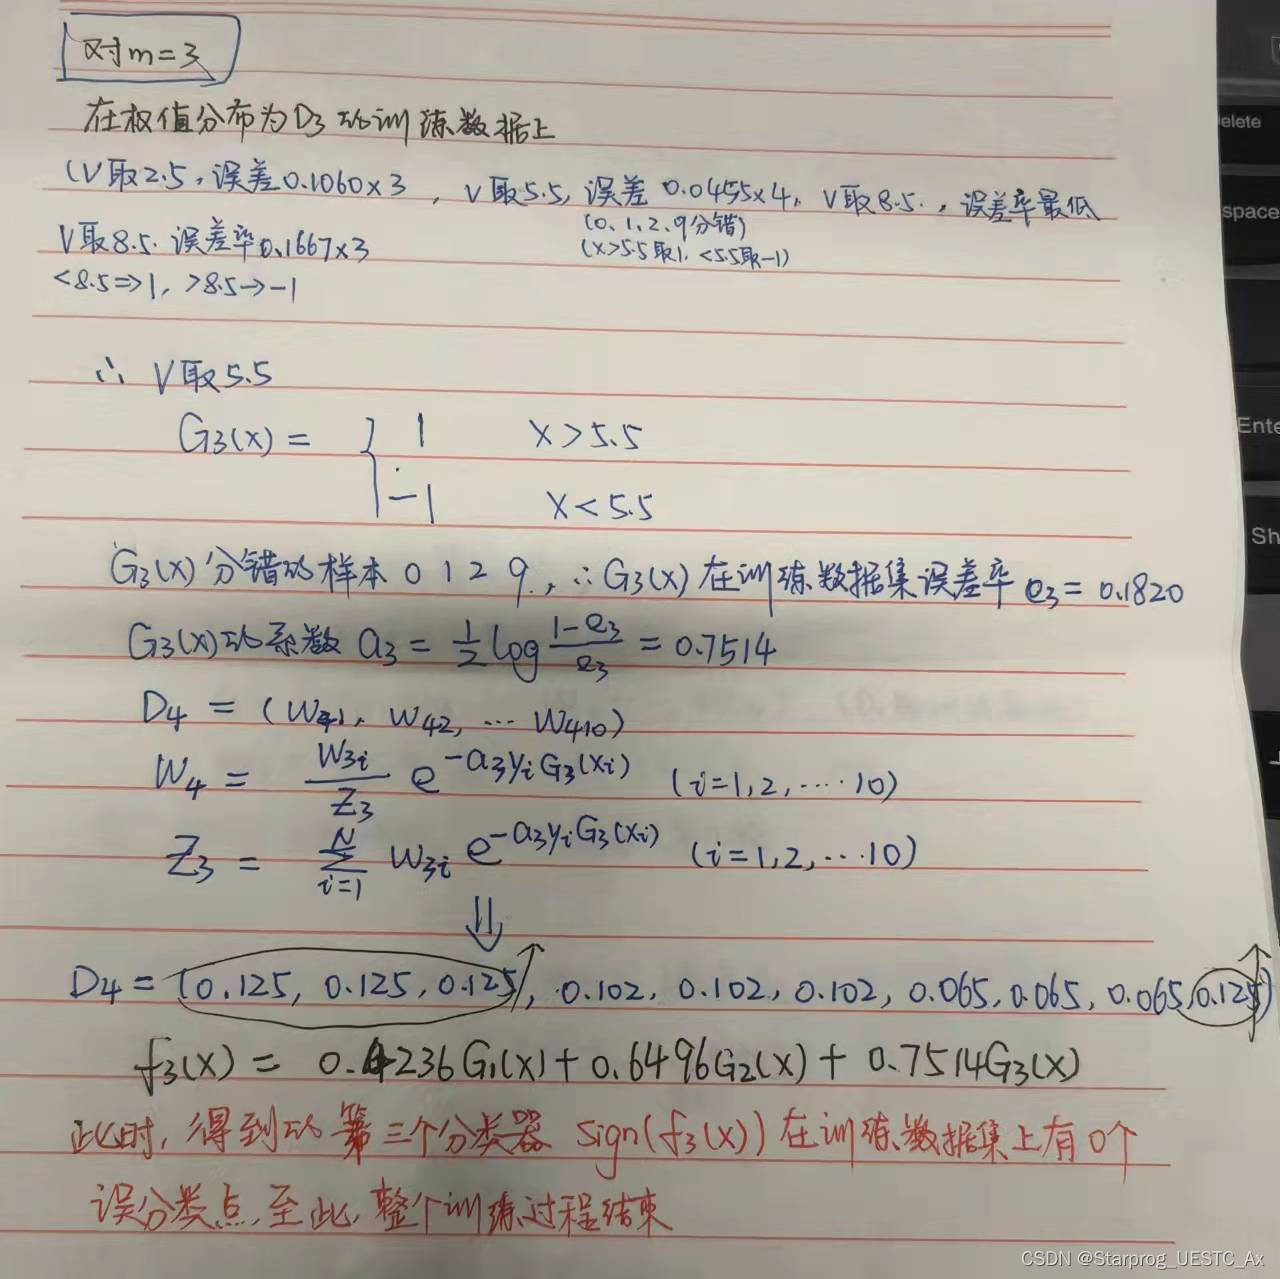 对m=3
在权值分布为D3的训练数据上
(V取2.5,误差0.1060×3, V取5.5,误差 0.0455×4, V取8.5.,误差率最低
(0、1、2、9分错)
(X>5.5取1, <5.5取-1)
V取8.5. 误差率0.1667×3
<8.5=>1, >8.5→-1
∴ V取5.5
G3(x) = { 1 X>5.5
-1 X<5.5
G3(x)分错的样本 0 1 2 9, ∴G3(x)在训练数据集误差率 e3=0.1820
G3(x)的系数 a3 = 1/2 log (1-e3)/e3 = 0.7514
D4 = (W41, W42, … W410)
W4 = W3i/Z3 e^(-a3yiG3(xi)) (i=1,2,…10)
Z3 = Σ(i=1→N) W3i e^(-a3yiG3(xi)) (i=1,2,…10)
⇓
D4 = (0.125, 0.125, 0.125, 0.102, 0.102, 0.102, 0.065, 0.065, 0.065, 0.125)
f3(x) = 0.4236G1(x) + 0.6496G2(x) + 0.7514G3(x)
此时,得到的第三个分类器 sign(f3(x)) 在训练数据集上有0个
误分类点,至此,整个训练过程结束
elete
space
Ente
Sh
CSDN @Starprog_UESTC_Ax